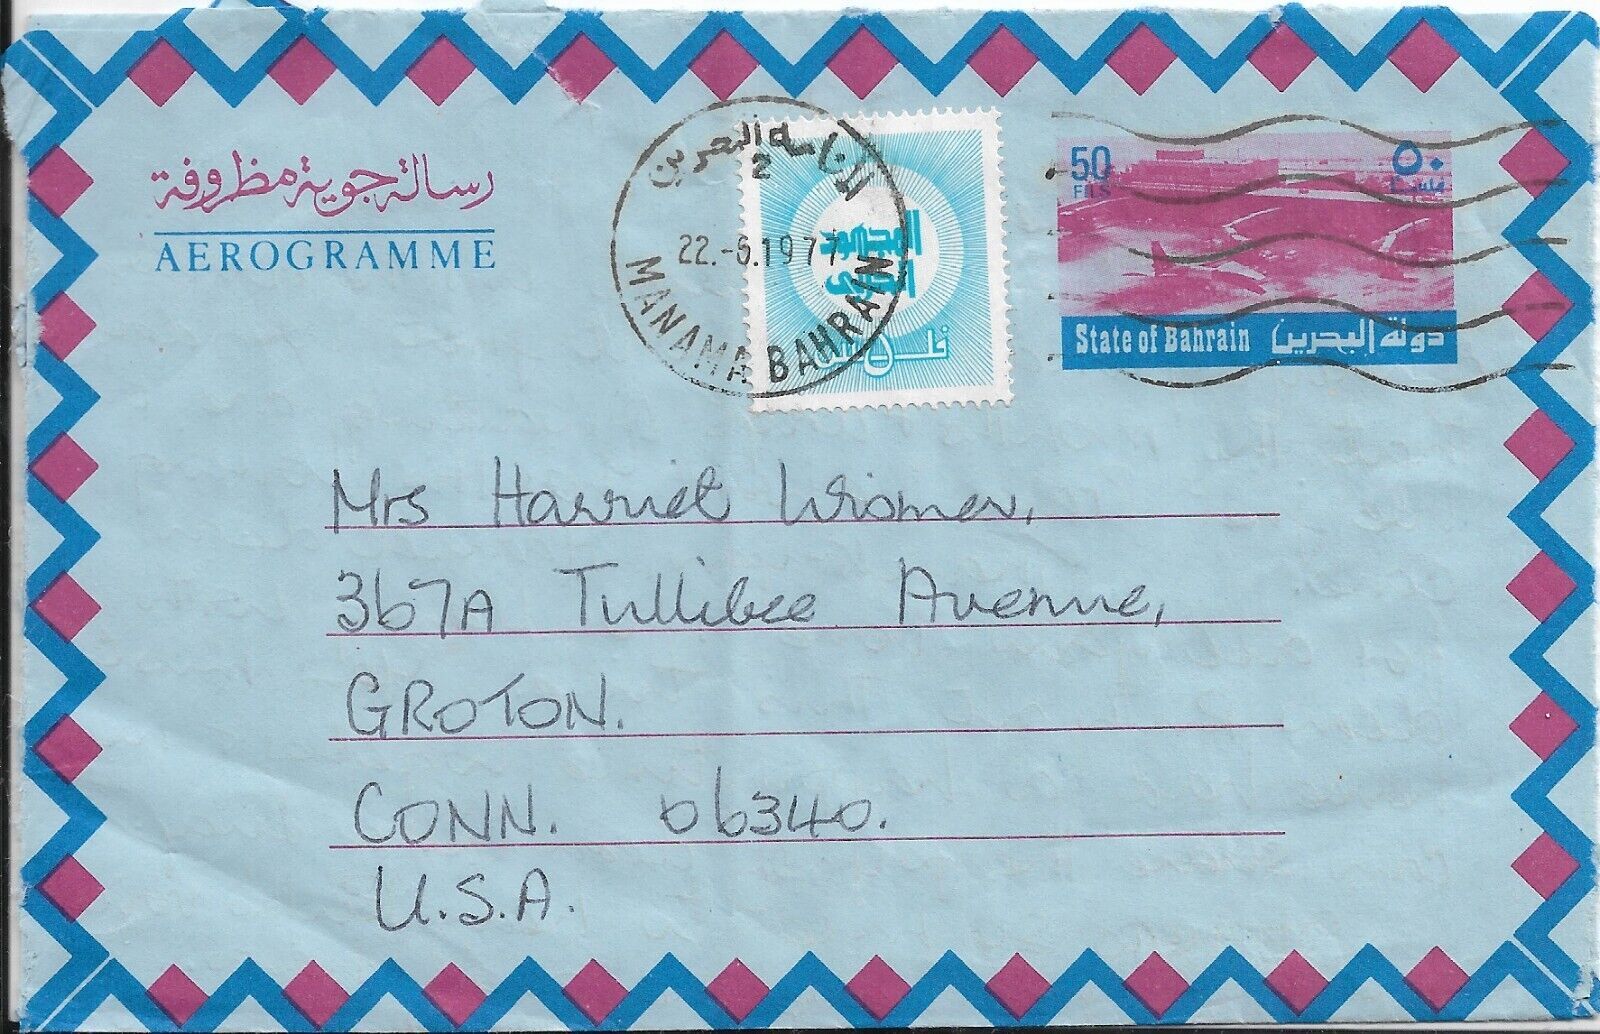 رسالة جوية مظروفة
AEROGRAMME
المنامة البحرين
2
22.-6.1977
MANAMA BAHRAIN
المجهود
الحربي
فلس
50
FILS
٥٠
فلسا
State of Bahrain دولة البحرين
Mrs Harriet Wismer,
367A Tullibee Avenue,
GROTON.
CONN. 06340.
U.S.A.